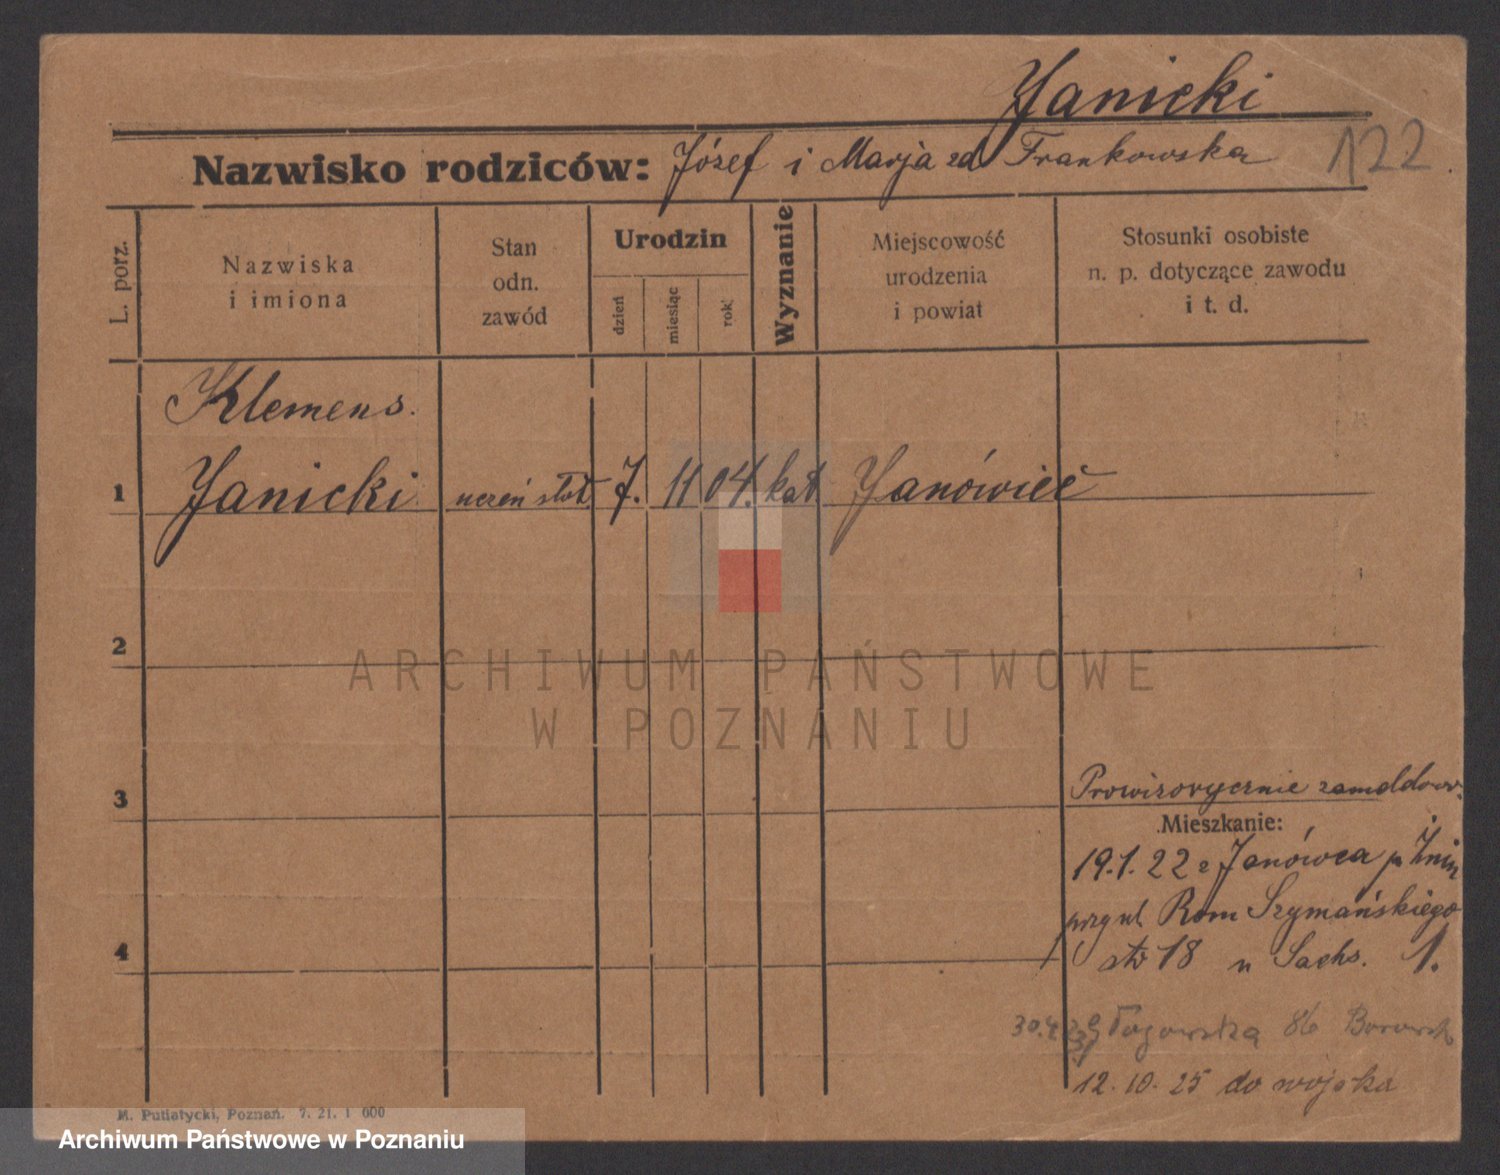 Janicki
Nazwisko rodziców: Józef i Marja zd Frankowska
122
L. porz.
Nazwiska
i imiona
Stan
odn.
zawód
Urodzin
dzień
miesiąc
rok
Wyznanie
Miejscowość
urodzenia
i powiat
Stosunki osobiste
n. p. dotyczące zawodu
i t. d.
Klemens.
1 Janicki uczeń 7. 11 04. kat Janówiec
2
ARCHIWUM PAŃSTWOWE
W POZNANIU
3
Prowizorycznie zameldow.
Mieszkanie:
19.1.22 z Janówca p Żnin
przy ul. Rom Szymańskiego
4
18 u Sachs. 1.
30.4. Głogowska 86 Borowski
12.10.25 do wojska
M. Putiatycki, Poznań. 7. 21. 1 000
Archiwum Państwowe w Poznaniu